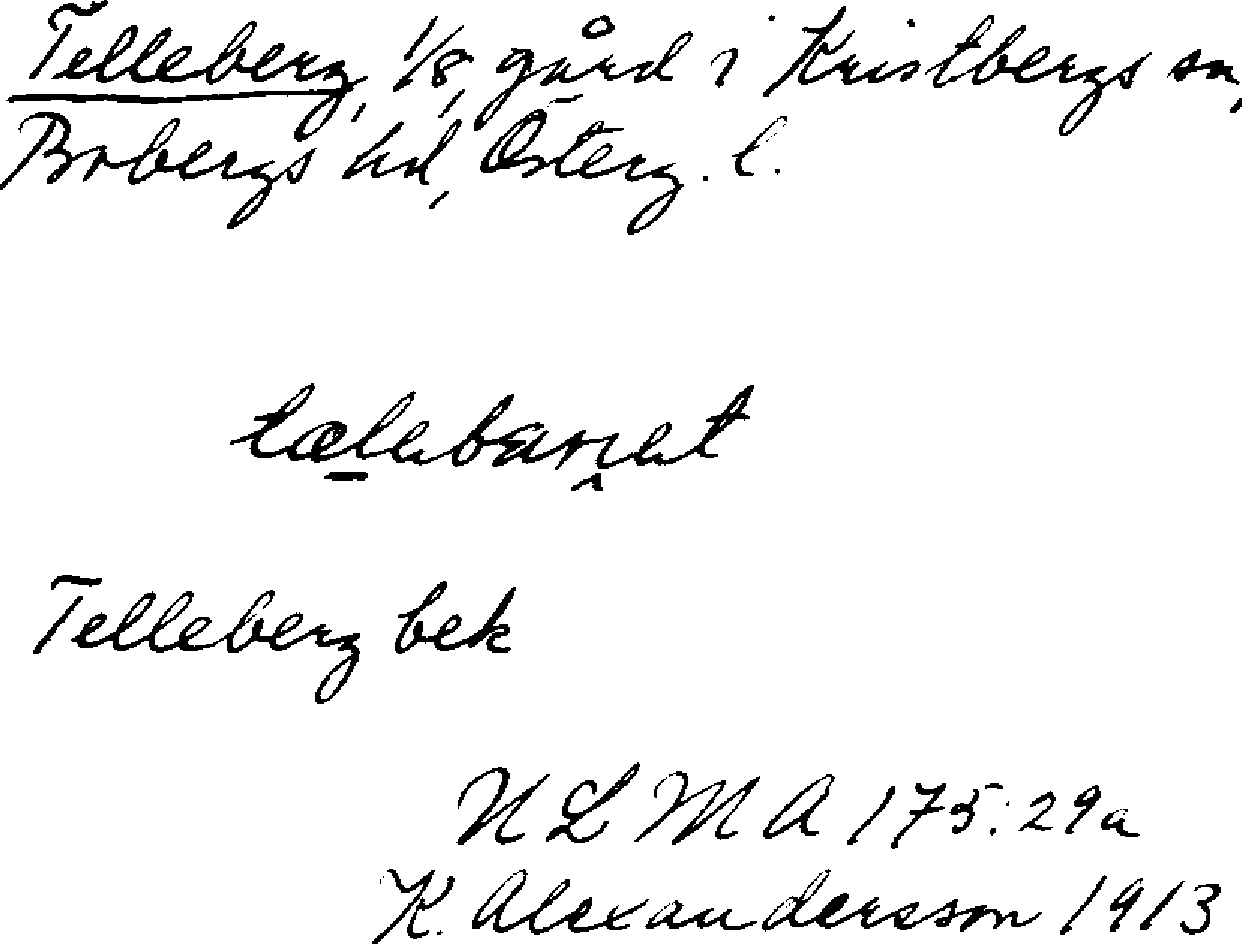 Telleberg, 1/8, gård i Kristbergs sn,
Bobergs hd, Österg. l.
Telleberg bek
N L M A 175:29a
K. Alexandersson 1913